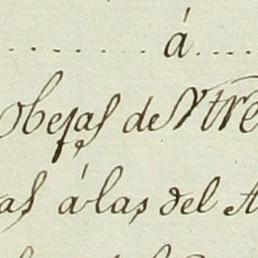 á
Obejas de Ytre
as á las del A